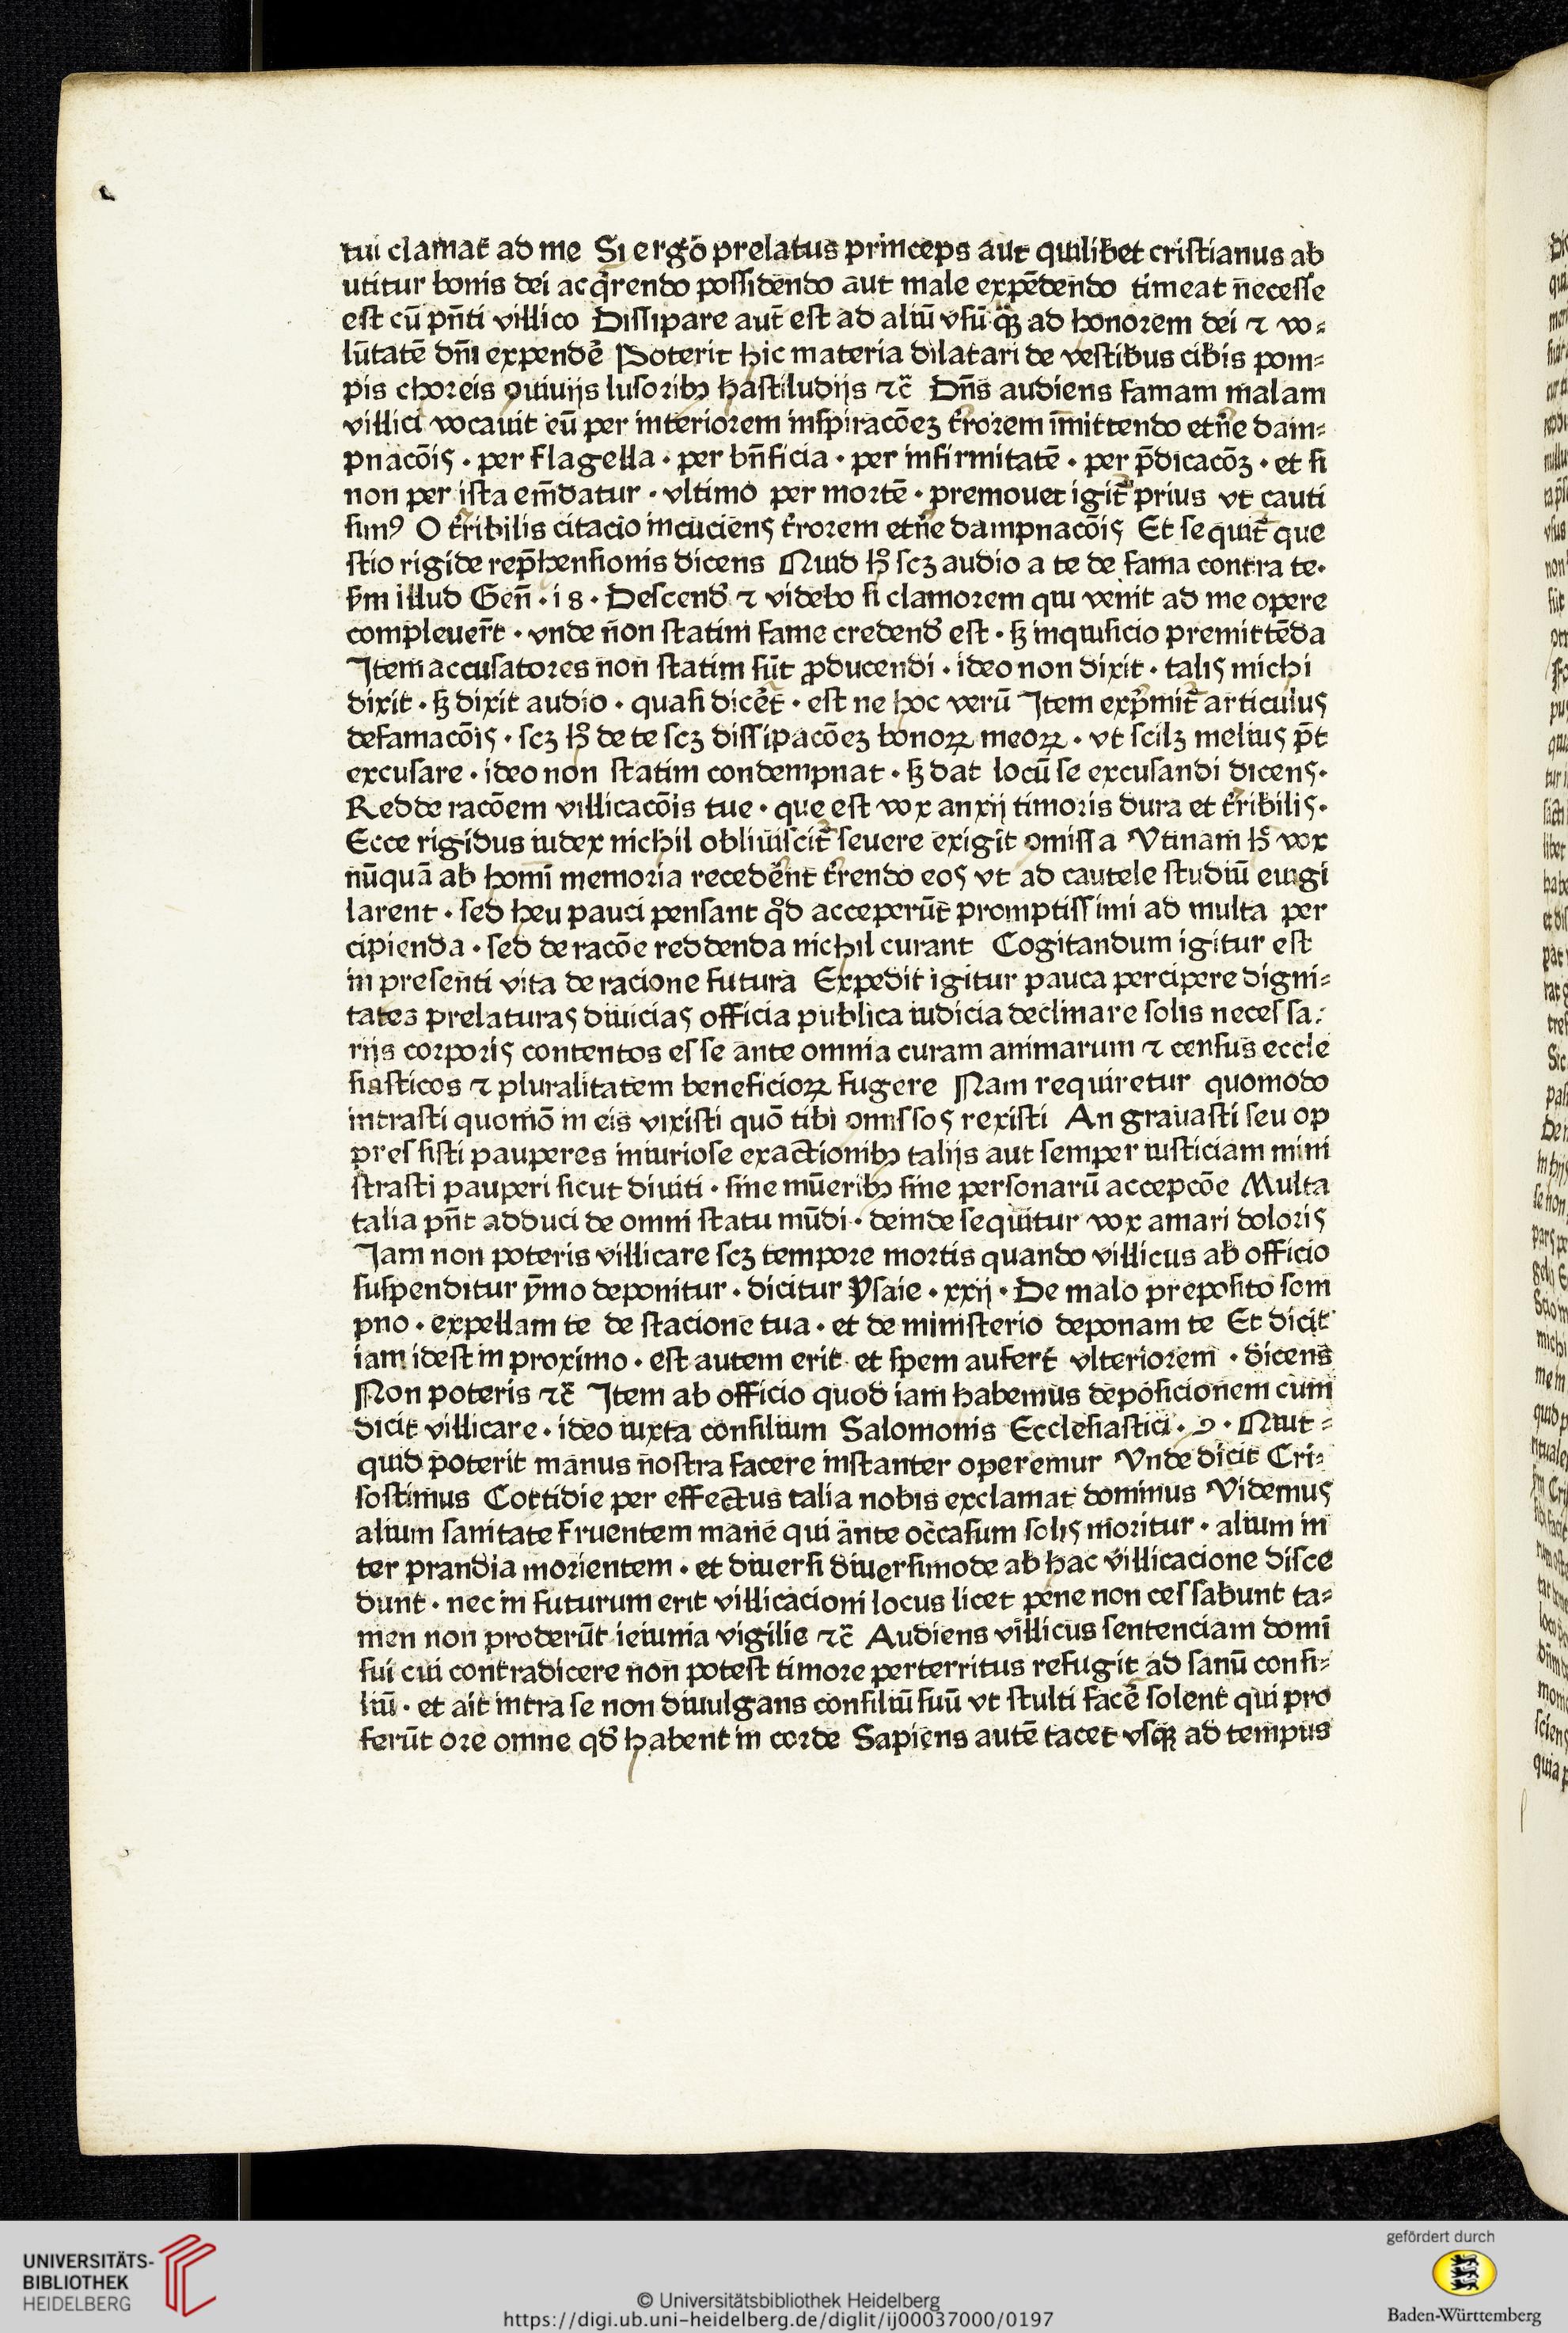 tui clamat ad me Si ergo prelatus princeps aut quilibet cristianus ab
utitur bonis dei acq̃rendo possidendo aut male expẽdendo timeat necesse
est cũ pñti villico Dissipare aut̃ est ad aliũ vsũ qꝫ ad honorem dei ⁊ vo⸗
lũtatẽ dñi expendẽ Poterit hic materia dilatari de vestibus cibis pom⸗
pis choreis ꝯuiuijs lusoribꝫ hastiludijs ⁊c̃ Dñs audiens famam malam
villici vocauit eũ per interiorem inspiracõeꝫ t̃rorem ĩmittendo etñe dam⸗
pnacõis · per flagella · per bñficia · per infirmitatẽ · per p̃dicacõꝫ · et si
non per ista em̃datur · vltimo per mortẽ · premouet igit̃ prius vt cauti
simꝰ O t̃ribilis citacio incuciens t̃rorem etñe dampnacõis Et sequit̃ que
stio rigide rep̃hensionis dicens Quid hͦ scꝫ audio a te de fama contra te·
ẜm illud Geñ · i8 · Descend̃ ⁊ videbo si clamorem qui venit ad me opere
compleuer̃t · vnde non statim fame credend̃ est · ꝫ inquisicio premittẽda
Item accusatores non statim sũt ꝓducendi · ideo non dixit · talis michi
dixit · ꝫ dixit audio · quasi dicẽt · est ne hoc verũ Item exp̃mit̃ articulus
defamacõis · scꝫ hͦ de te scꝫ dissipacõeꝫ bonoꝝ meoꝝ · vt scilꝫ melius p̃t
excusare · ideo non statim condempnat · ꝫ dat locũ se excusandi dicens·
Redde racõem villicacõis tue · que est vox anxij timoris dura et t̃ribilis·
Ecce rigidus iudex nichil obliuiscit̃ seuere exigit ꝯmissa Vtinam h̃ vox
nũquã ab homĩ memoria recedẽnt t̃rendo eos vt ad cautele studiũ euigi
larent · sed heu pauci pensant qͦd acceperũt promptissimi ad multa per
cipienda · sed de racõe reddenda nichil curant Cogitandum igitur est
in presenti vita de racione futura Expedit igitur pauca percipere digni⸗
tates prelaturas diuicias officia publica iudicia declinare solis necessa⸗
rijs corporis contentos esse ante omnia curam animarum ⁊ census eccle
siasticos ⁊ pluralitatem beneficioꝝ fugere Nam requiretur quomodo
intrasti quomõ in eis vixisti quõ tibi ꝯmissos rexisti An grauasti seu op
pressisti pauperes iniuriose exactionibꝫ talijs aut semper iusticiam mini
strasti pauperi sicut diuiti · sine mũeribꝫ sine personarũ accepcõe Multa
talia pñt adduci de omni statu mũdi · deinde sequitur vox amari doloris
Iam non poteris villicare scꝫ tempore mortis quando villicus ab officio
suspenditur ỹmo deponitur · dicitur Ysaie · xxij · De malo preposito som
pno · expellam te de stacione tua · et de ministerio deponam te Et dicit
iam idest in proximo · est autem erit et spem aufert vlteriorem · dicens
Non poteris ⁊c̃ Item ab officio quod iam habemus deposicionem cum
dicit villicare · ideo iuxta consilium Salomonis Ecclesiastici · 9 · Quit⸗
quid poterit manus nostra facere instanter operemur Vnde dicit Cri⸗
sostimus Cottidie per effectus talia nobis exclamat dominus Videmus
alium sanitate fruentem mane qui ante occasum solis moritur · alium in
ter prandia morientem · et diuersi diuersimode ab hac villicacione disce
dunt · nec in futurum erit villicacioni locus licet pene non cessabunt ta⸗
men non proderũt ieiunia vigilie ⁊c̃ Audiens villicus sentenciam domĩ
sui cui contradicere non potest timore perterritus refugit ad sanũ consi⸗
liũ · et ait intra se non diuulgans consiliũ suũ vt stulti facẽ solent qui pro
ferũt ore omne qd̃ habent in corde Sapiens autẽ tacet vsqꝫ ad tempus
UNIVERSITÄTS-
BIBLIOTHEK
HEIDELBERG
© Universitätsbibliothek Heidelberg
https://digi.ub.uni-heidelberg.de/diglit/ij00037000/0197
gefördert durch
Baden-Württemberg